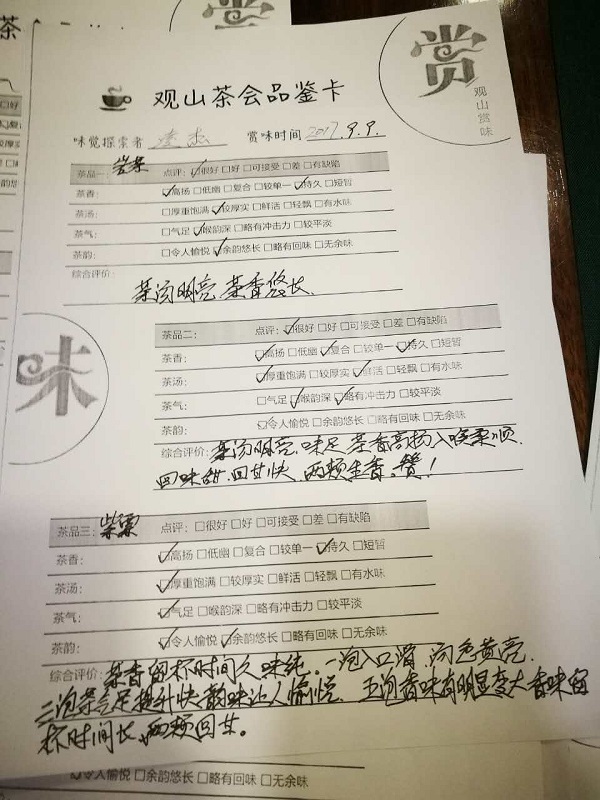 赏
观山赏味
观山茶会品鉴卡
味觉探索者 赏味时间 2017.9.9.
茶品一: 紫茶 点评: ☑很好 □好 □可接受 □差 □有缺陷
茶香: ☑高扬 □低幽 □复合 □较单一 ☑持久 □短暂
茶汤: □厚重饱满 ☑较厚实 □鲜活 □轻飘 □有水味
茶气: □气足 ☑喉韵深 □略有冲击力 □较平淡
茶韵: □令人愉悦 ☑余韵悠长 □略有回味 □无余味
综合评价:
茶汤明亮 茶香悠长.
味
茶品二: 点评: ☑很好 □好 □可接受 □差 □有缺陷
茶香: ☑高扬 □低幽 ☑复合 □较单一 ☑持久 □短暂
茶汤: ☑厚重饱满 □较厚实 ☑鲜活 □轻飘 □有水味
茶气: □气足 ☑喉韵深 ☑略有冲击力 □较平淡
茶韵: ☑令人愉悦 □余韵悠长 □略有回味 □无余味
综合评价: 茶汤明亮. 味足 茶香高扬 入喉柔顺.
回味甜. 回甘快. 两颊生香. 赞!
茶品三: 紫票 点评: □很好 □好 □可接受 □差 □有缺陷
茶香: ☑高扬 □低幽 □复合 □较单一 ☑持久 □短暂
茶汤: ☑厚重饱满 □较厚实 □鲜活 □轻飘 □有水味
茶气: ☑气足 □喉韵深 □略有冲击力 □较平淡
茶韵: ☑令人愉悦 ☑余韵悠长 □略有回味 □无余味
综合评价: 茶香留杯时间久 味纯. 一泡入口滑, 汤色黄亮.
二泡茶气足 提升快 韵味让人愉悦. 五泡香味有明显变大 香味留
杯时间长, 两颊回甘。
☑令人愉悦 □余韵悠长 □略有回味 □无余味